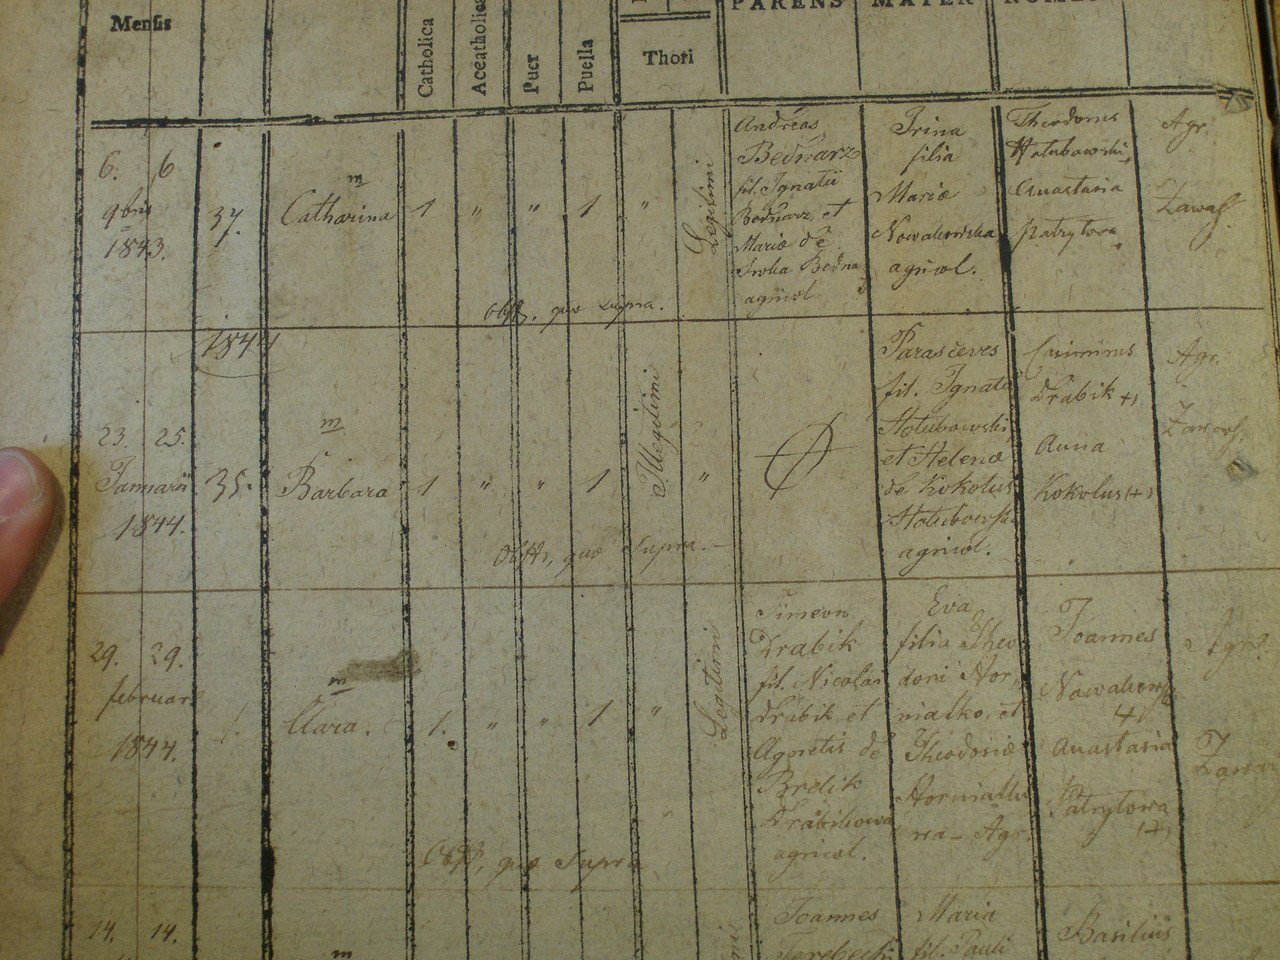 Mensis
Catholica
Puer
Puella
Thori
PARENS
MATER
6. 6
9bris
1843.
37.
m
Catharina
1 " " 1 "
Legitimi
Andreas
Bednarz
fil. Ignatii
Bednarz et
Mariæ de
agricol
Irina
filia
Mariæ
Nowakowska
agricol.
Theodorus
Hołubowski
Anastasia
Patrytowa
Agr.
Obst. quæ supra.
1844
23. 25.
Januarii
1844.
35.
m
Barbara
1 " " 1
Illegitimi
"
Parasceves
fil. Ignatii
Hołubowski
et Helenæ
de Kokolus
agricol.
Casimirus
Drabik +)
Anna
Kokolus (+)
Agr.
Obst. quæ supra.
29. 29.
februar
1844.
1.
m
Clara.
1. " " 1 "
Legitimi
Simeon
Drabik
fil. Nicolai
Drabik et
Agnetis de
Drabikowa
agricol.
Eva
filia Theo
dori Hor
niatko, et
Theodosiæ
wa - Agr.
Joannes
+)
Anastasia
Patrytowa
(+)
Agr.
Obst, quæ Supra
14. 14.
m
Joannes
Terebecki
Maria
fil. Pauli
Basilius